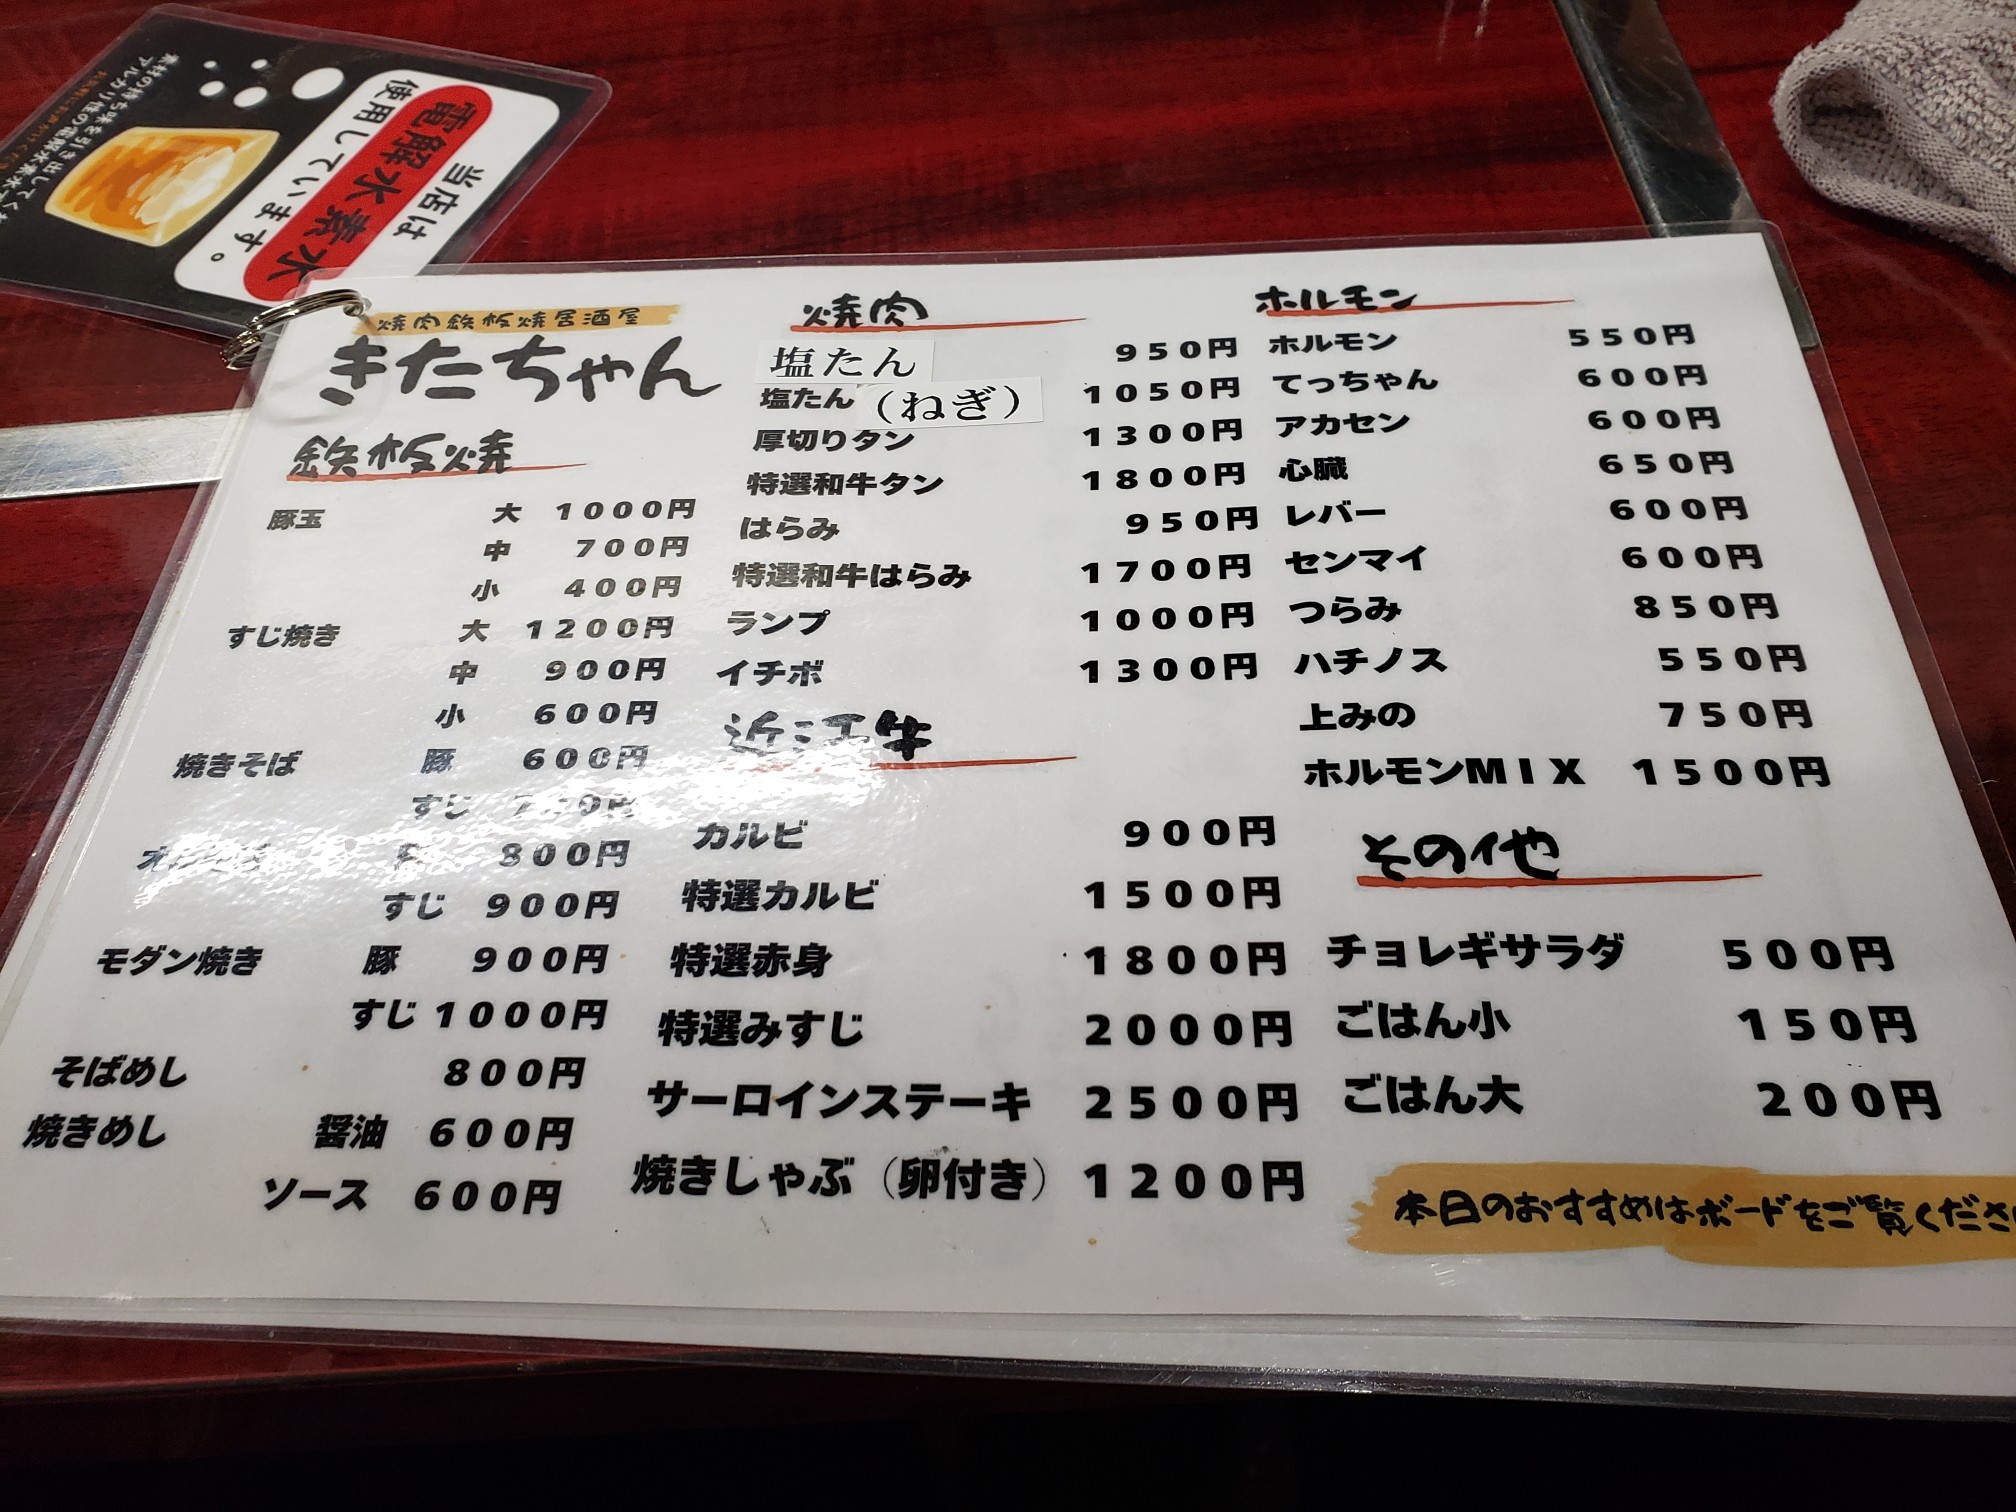 当店は
電解水素水
使用しています。
素材の持ち味を引き出して
アルカリ性の電解水素水で
焼肉鉄板焼居酒屋
きたちゃん
鉄板焼
豚玉 大 1000円
中 700円
小 400円
すじ焼き 大 1200円
中 900円
小 600円
焼きそば 豚 600円
すじ
800円
すじ 900円
モダン焼き 豚 900円
すじ 1000円
そばめし 800円
焼きめし 醤油 600円
ソース 600円
焼肉
塩たん 950円
塩たん(ねぎ) 1050円
厚切りタン 1300円
特選和牛タン 1800円
はらみ 950円
特選和牛はらみ 1700円
ランプ 1000円
イチボ 1300円
近江牛
カルビ 900円
特選カルビ 1500円
特選赤身 1800円
特選みすじ 2000円
サーロインステーキ 2500円
焼きしゃぶ(卵付き) 1200円
ホルモン
ホルモン 550円
てっちゃん 600円
アカセン 600円
心臓 650円
レバー 600円
センマイ 600円
つらみ 850円
ハチノス 550円
上みの 750円
ホルモンMIX 1500円
その他
チョレギサラダ 500円
ごはん小 150円
ごはん大 200円
本日のおすすめはボードをご覧くださ